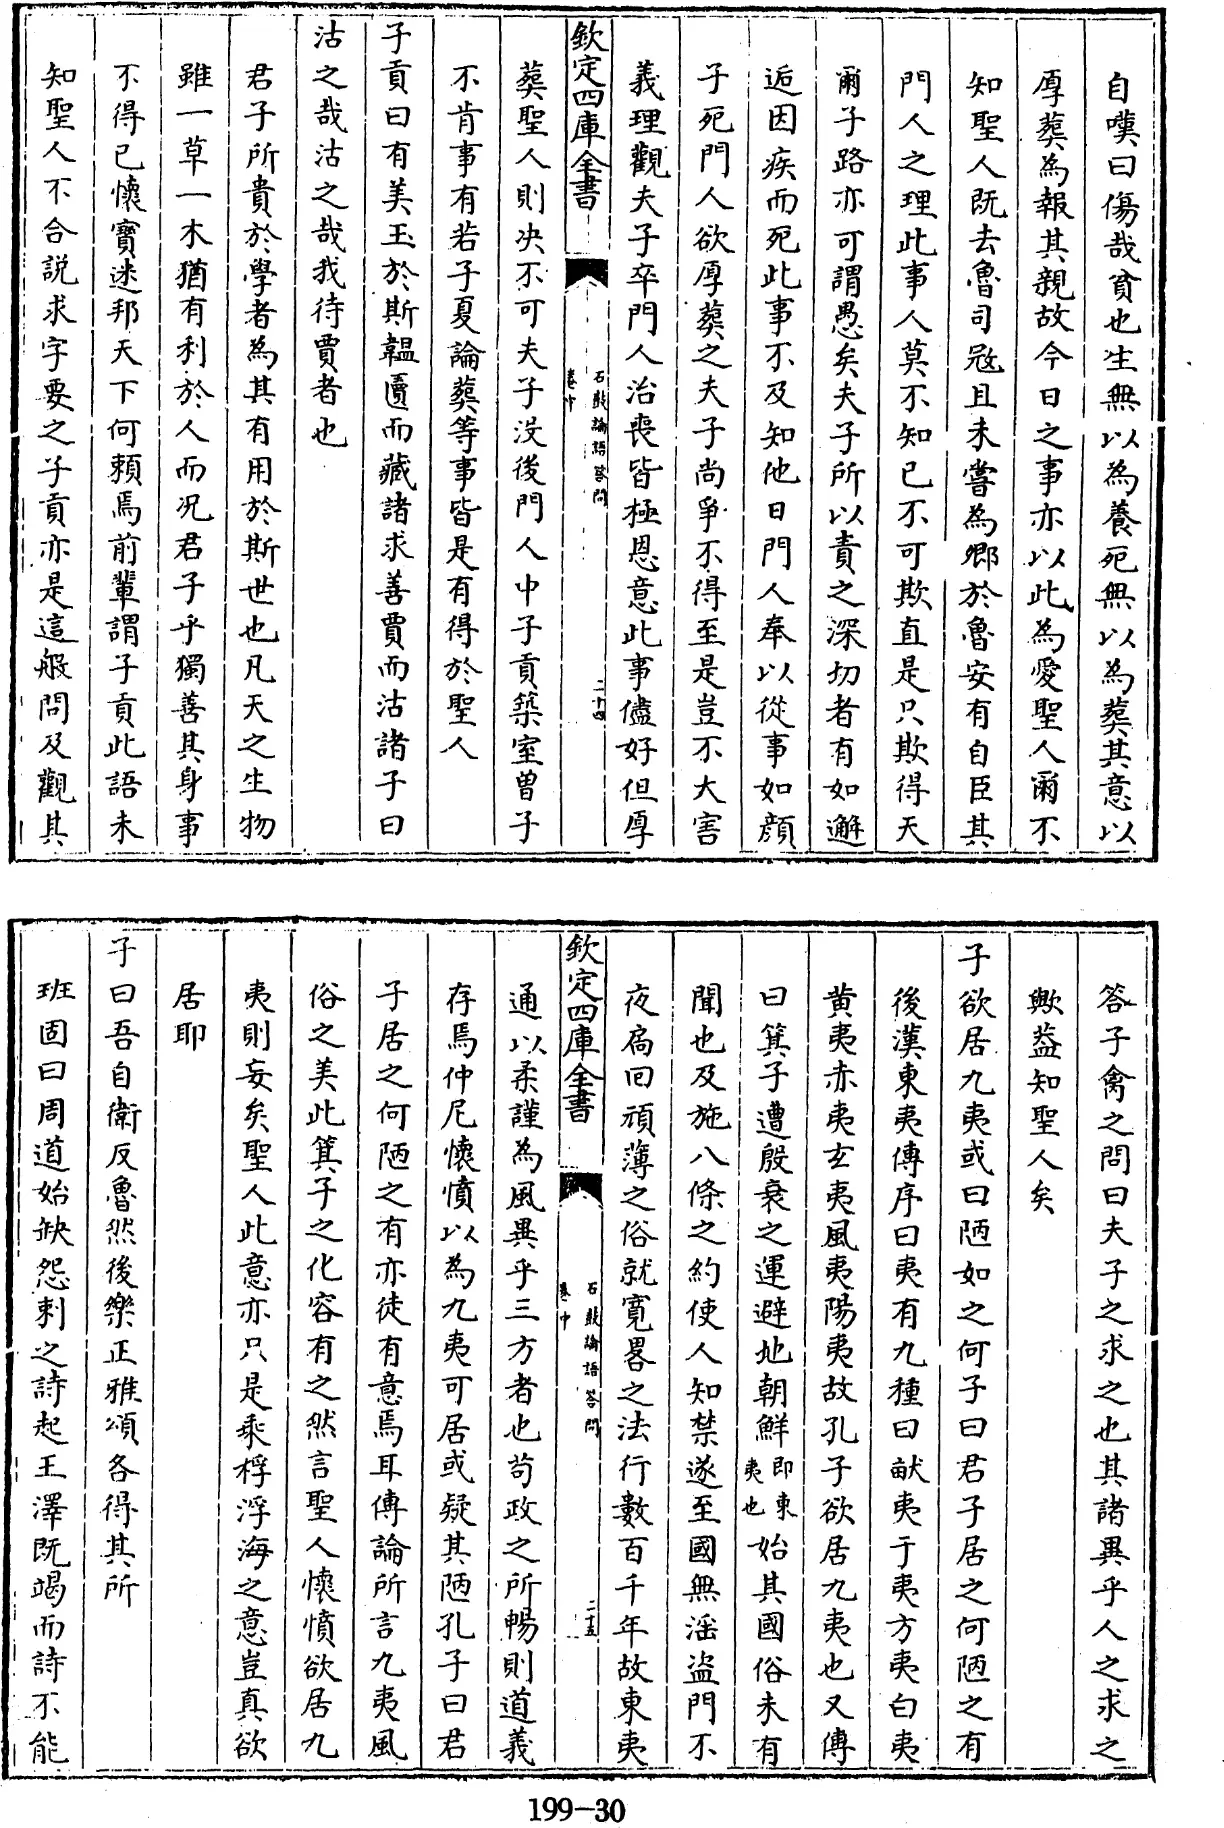 自嘆曰傷哉貧也生無以為養死無以為葬其意以
厚葬為報其親故今日之事亦以此為愛聖人爾不
知聖人既去魯司宼且未嘗為卿於魯安有自臣其
門人之理此事人莫不知已不可欺直是只欺得天
爾子路亦可謂愚矣夫子所以責之深切者有如邂
逅因疾而死此事不及知他日門人奉以從事如顔
子死門人欲厚葬之夫子尚爭不得至是豈不大害
義理觀夫子卒門人治喪皆極恩意此事儘好但厚
欽定四庫全書
石鼓論語答問
卷中
二十四
葬聖人則决不可夫子沒後門人中子貢築室曽子
不肯事有若子夏論葬等事皆是有得於聖人
子貢曰有美玉於斯韞匵而藏諸求善賈而沽諸子曰
沽之哉沽之哉我待賈者也
君子所貴於學者為其有用於斯世也凡天之生物
雖一草一木猶有利於人而况君子乎獨善其身事
不得已懷寶迷邦天下何頼焉前輩謂子貢此語未
知聖人不合説求字要之子貢亦是這般問及觀其
答子禽之問曰夫子之求之也其諸異乎人之求之
歟葢知聖人矣
子欲居九夷或曰陋如之何子曰君子居之何陋之有
後漢東夷傳序曰夷有九種曰畎夷于夷方夷白夷
黄夷赤夷玄夷風夷陽夷故孔子欲居九夷也又傳
曰箕子遭殷衰之運避地朝鮮即東夷也始其國俗未有
聞也及施八條之約使人知禁遂至國無淫盜門不
夜扃回頑薄之俗就寛畧之法行數百千年故東夷
欽定四庫全書
石鼓論語答問
卷中
二十五
通以柔謹為風異乎三方者也苟政之所暢則道義
存焉仲尼懷憤以為九夷可居或疑其陋孔子曰君
子居之何陋之有亦徒有意焉耳傳論所言九夷風
俗之美此箕子之化容有之然言聖人懷憤欲居九
夷則妄矣聖人此意亦只是乘桴浮海之意豈真欲
居耶
子曰吾自衛反魯然後樂正雅頌各得其所
班固曰周道始缺怨刺之詩起王澤既竭而詩不能
199-30